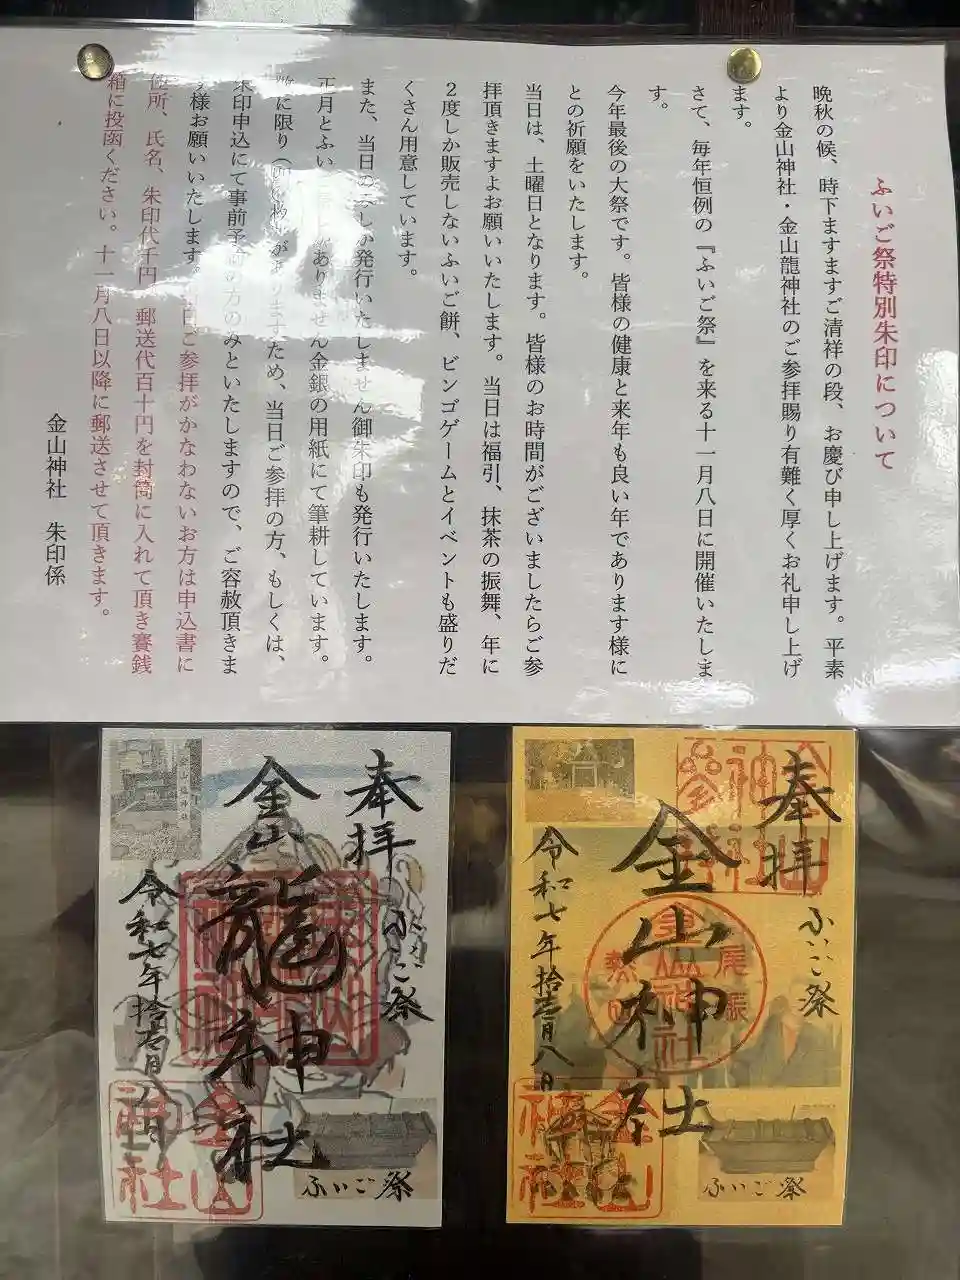 ふいご祭特別朱印について
晩秋の候、時下ますますご清祥の段、お慶び申し上げます。平素
より金山神社・金山龍神社のご参拝賜り有難く厚くお礼申し上げ
ます。
さて、毎年恒例の『ふいご祭』を来る十一月八日に開催いたしま
す。
今年最後の大祭です。皆様の健康と来年も良い年であります様に
との祈願をいたします。
当日は、土曜日となります。皆様のお時間がございましたらご参
拝頂きますよお願いいたします。当日は福引、抹茶の振舞、年に
２度しか販売しないふいご餅、ビンゴゲームとイベントも盛りだ
くさん用意しています。
また、当日のしか発行いたしません御朱印も発行いたします。
正月とふいありません金銀の用紙にて筆耕しています。
に限り（がますため、当日ご参拝の方、もしくは、
朱印申込にて事前予の方のみといたしますので、ご容赦頂きま
す様お願いいたします。当日ご参拝がかなわないお方は申込書に
住所、氏名、朱印代千円、郵送代百十円を封筒に入れて頂き賽銭
箱に投函ください。十一月八日以降に郵送させて頂きます。
金山神社　朱印係
奉拝 ふいご祭
金山神社
令和七年拾壱月八日
尾張
熱田
金山神社
ふいご祭
奉拝 ふいご祭
金山龍神社
令和七年拾壱月八日
金山龍神社
金山神社
ふいご祭